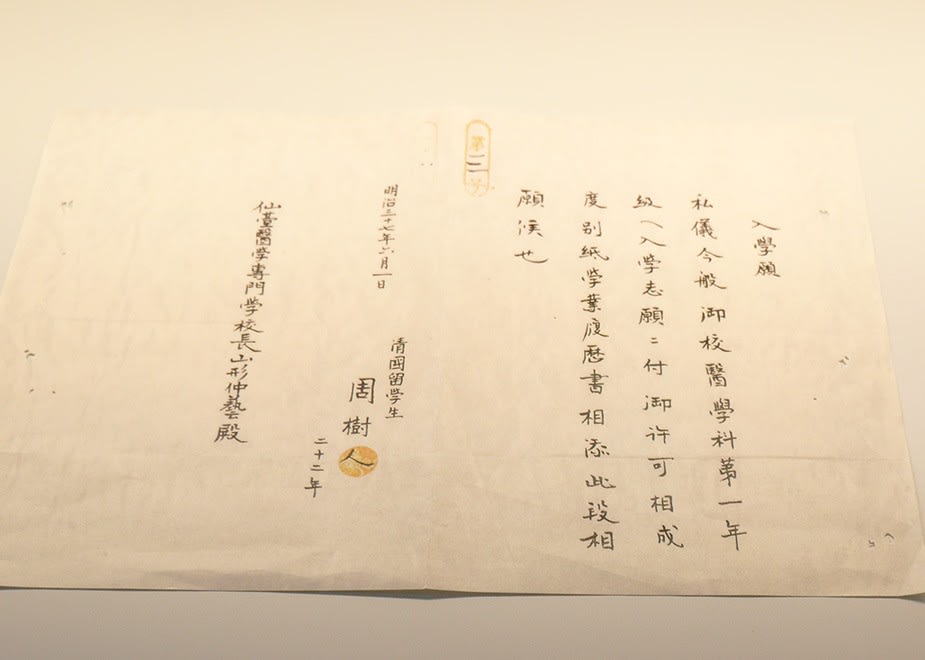 入學願
私儀今般御校醫學科第一年
級ヘ入学志願ニ付御許可相成
度別紙学業履歴書相添此段相
願候也
第三号
明治三十七年六月一日
清國留学生
周樹人
二十二年
仙臺醫学專門学校長山形仲藝殿